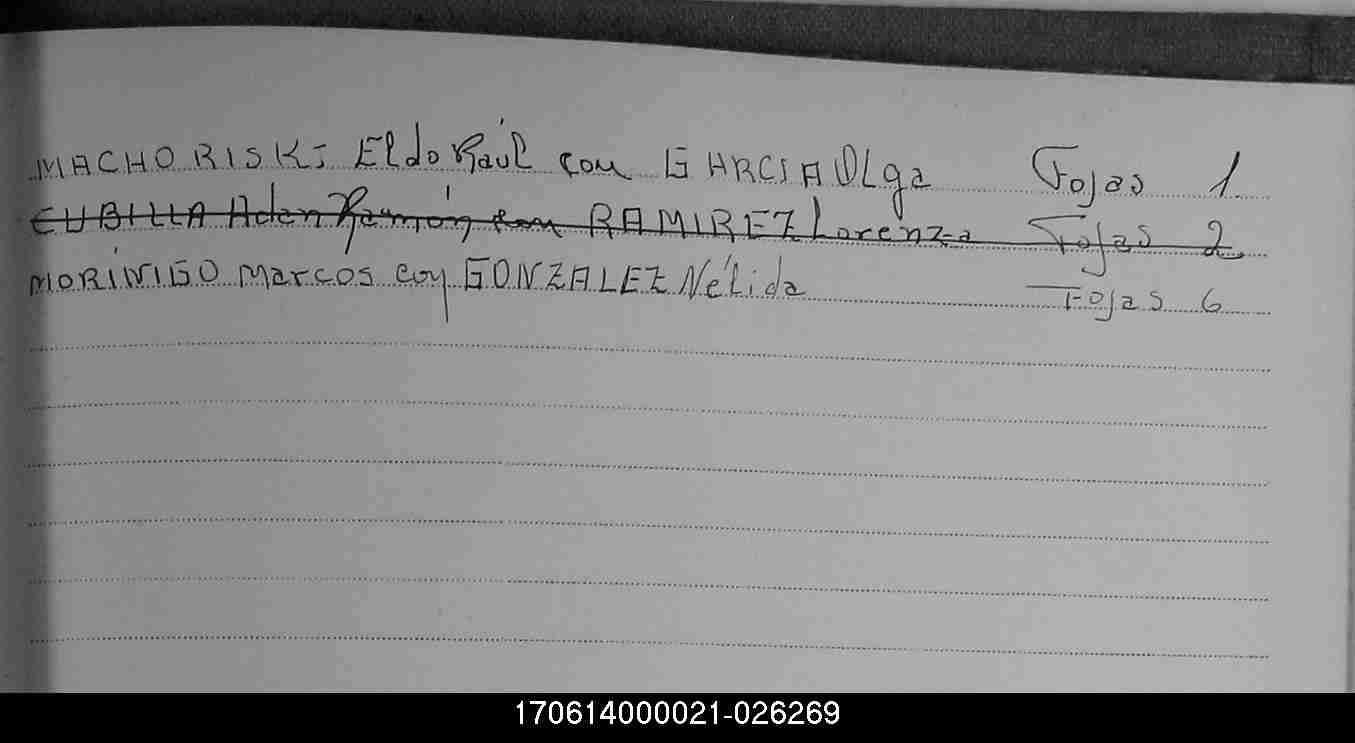 MACHORISKI Eldo Raúl con GARCIA Olga Fojas 1
CUBILLA Aden Ramón con RAMIREZ Lorenza Fojas 2
MORÍNIGO Marcos con GONZALEZ Nélida Fojas 6
170614000021-026269